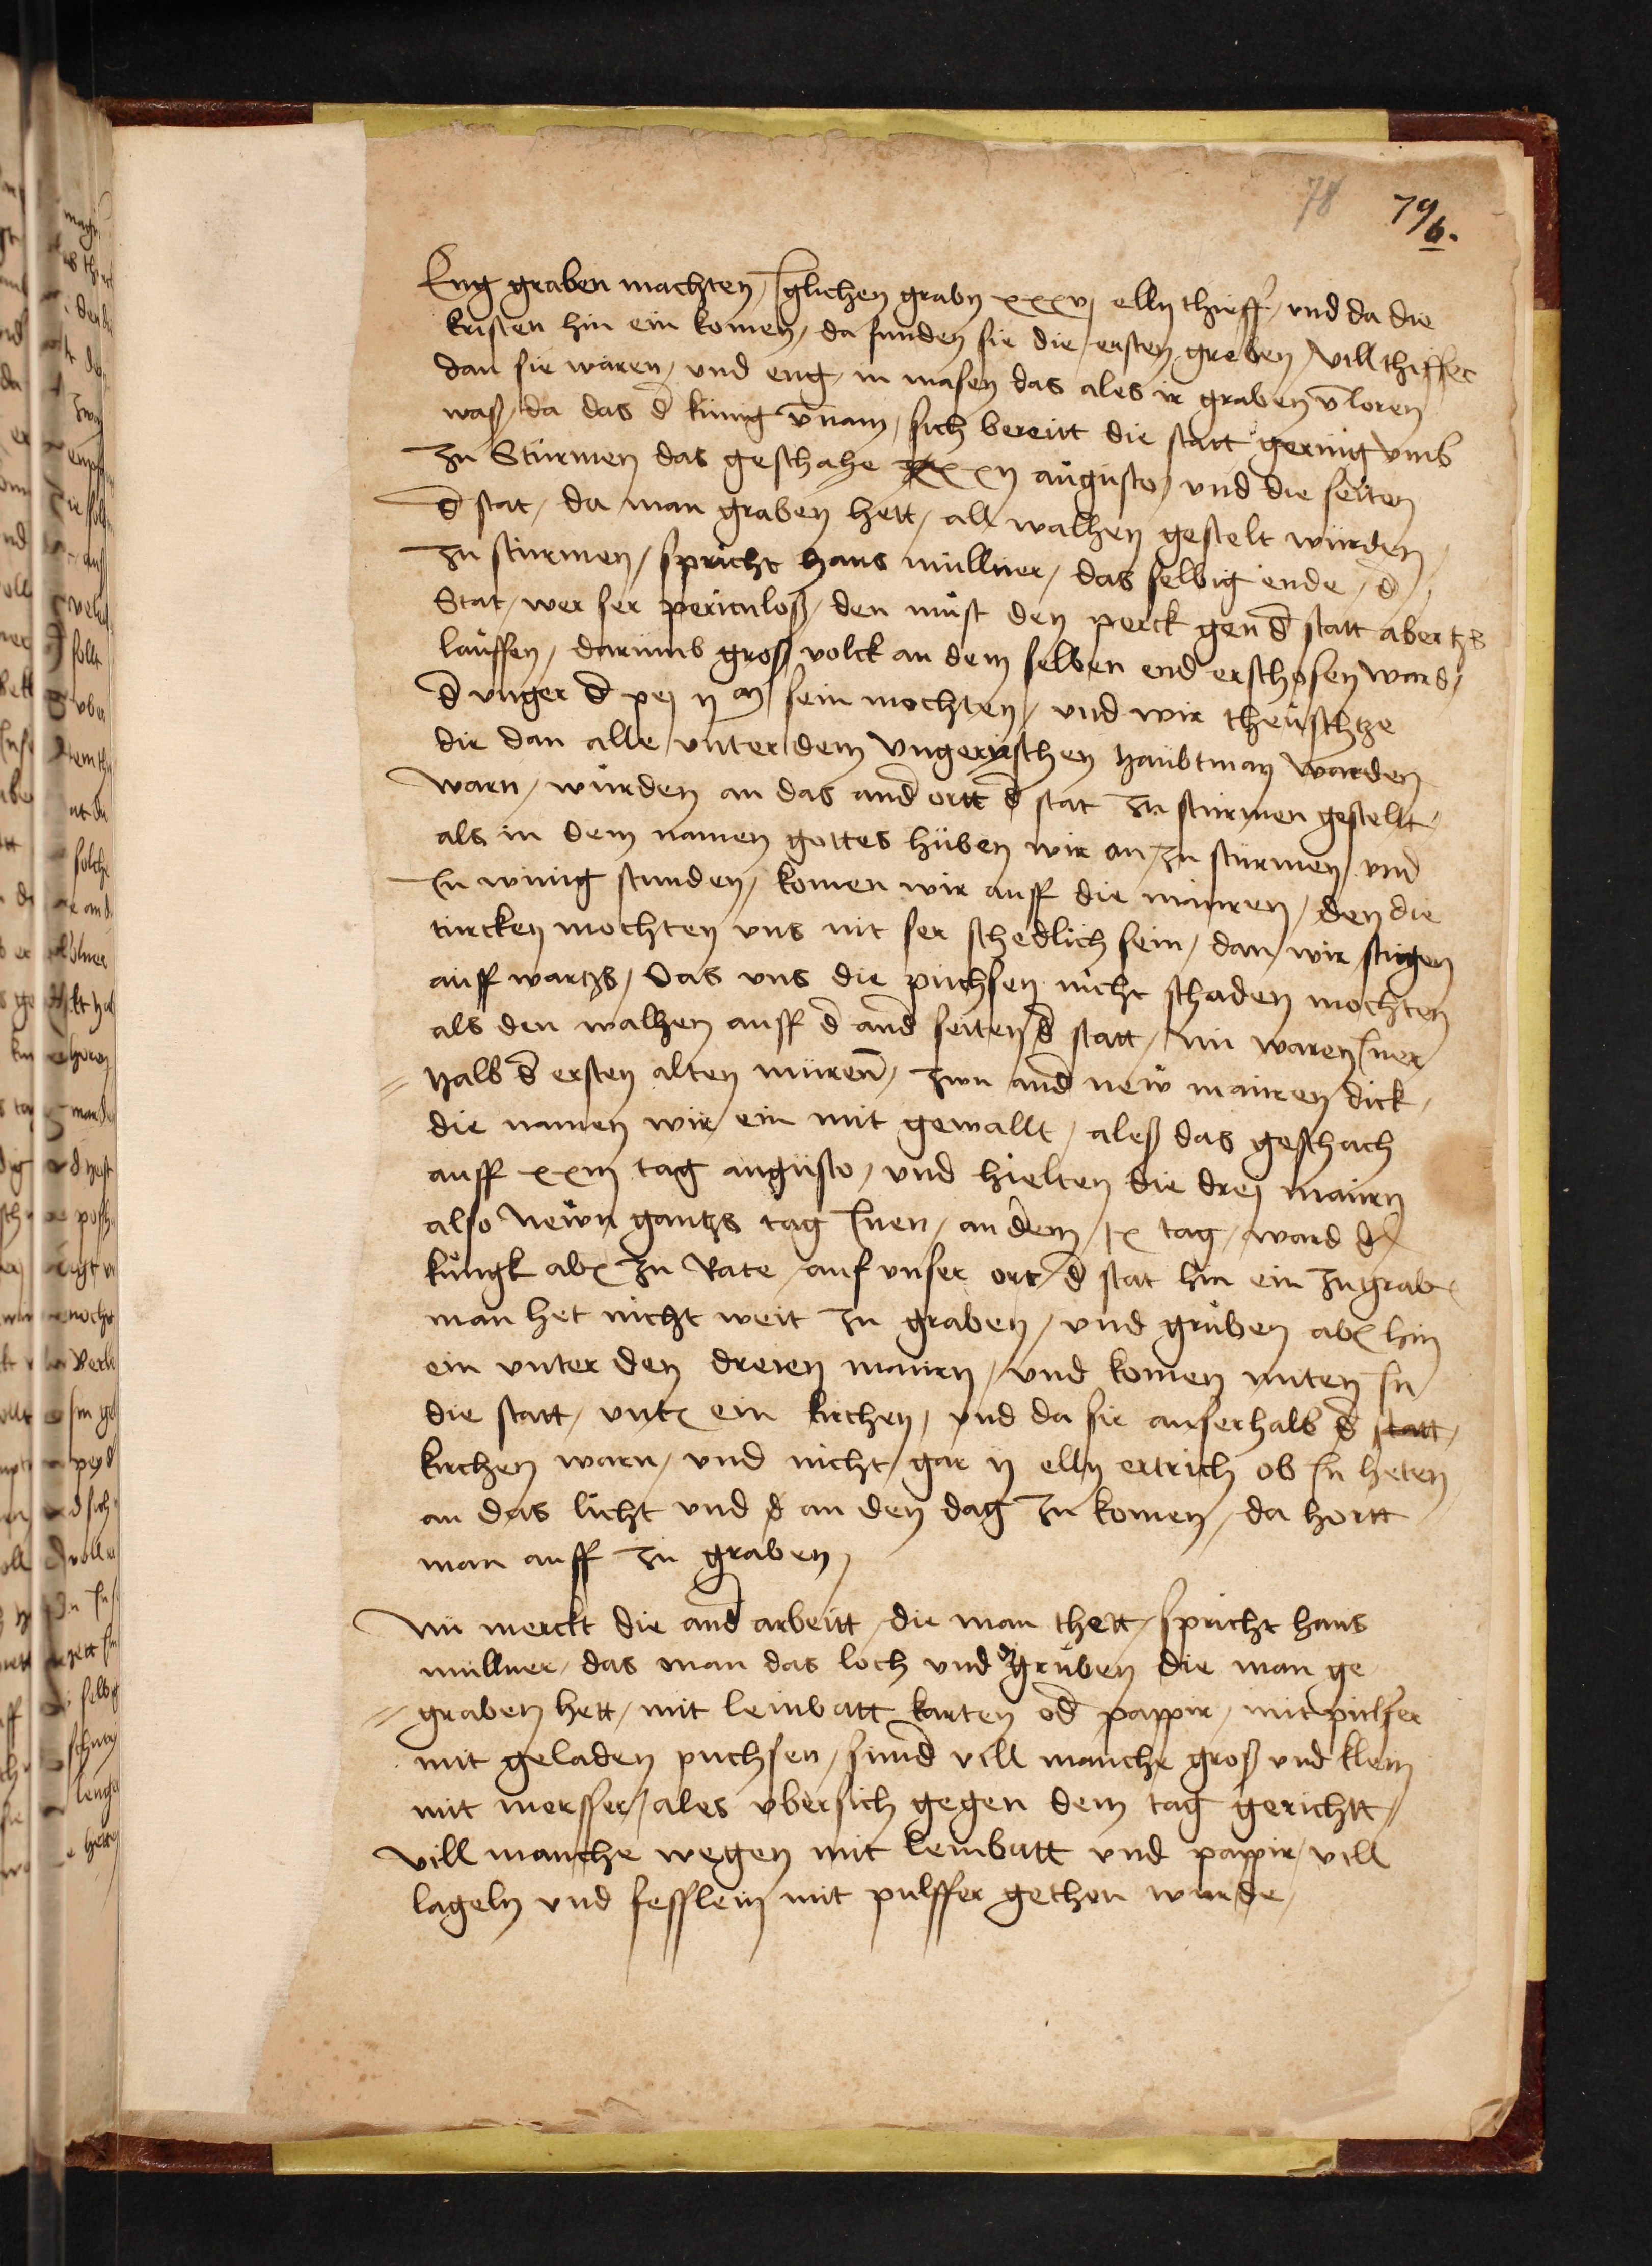 78 79
6.
Eng graben machten / Iglichen grabn xxxvj elln thieff / und da die
kristen hin ein komen / da funden sie die ersten greben / vill thiffer
dan sie waren / und eng / in masen das ales ir graben v̄loren
waß / da das d̄ künig v̄nam / sich bereitt die statt gering vmb
zu Stürmen das geschahe xxij augusto / und die seiten
d̄ stat / da man graben hett / all walhen gestelt würden
zu stürmen / spricht hans müllner / das selbig ende / d̄
Stat / wer ser periculoß / den müst den perck gen d̄ statt abertzs
lauffen / darümb groß volck an dem selben end erschosen ward /
d̄ vnger d̄ pej ij m sein mochten / und wir theüschtze
die dan alle unter dem vngerischen haubtman warden
warn / würden an das and̄ ortt d̄ stat zu stürmen gestellt /
als in dem namen gottes hüben wir an / zu stürmen / und
In winig stunden / komen wir auff die mauren / den die
türcken mochten uns nit ser schedlich sein / dan wir stigen
auff wartzs / Das uns die püchsen nicht schaden mochten
als den walhen auff d̄ and̄ seiten d̄ statt / nü waren Iner
halb d̄ ersten alten mürenn̄ / zwu and̄ new mauren dick /
die namen wir ein mit gewallt / aleß das geschach
auff xxiij tag augusto / und hielten die drej maurn
also newn gantzs tag Inen / an dem / ix tag / ward d̄
küngk aber zu Rate / auf unser ort / d̄ stat hin ein zugraben
man het nicht weit zu graben / und grüben aber hin
ein unter den dreien maurn / und komen miten In
die statt / unter ein kirchen / und da sie auserhalb d̄ statt /
kirchen warn / und nicht gar ij elln ertrich ob In heten
an das licht und d an den dag zu komen / da hortt
man auff zu graben /
Nü merckt die and̄ arbeitt / die man thett / spricht hans
müllner / das man das loch und grüben die man ge
graben hett / mit leinbatt karten od̄ pappir / mit pulfer
mit geladen püchsen / sund̄ vill manche groß und klein
mit morsser / ales ubersich gegen dem tag gerichtt /
vill manche wegen mit leinbatt und pappir / vill
lageln und fesslein mit pulffer gethon wurde /